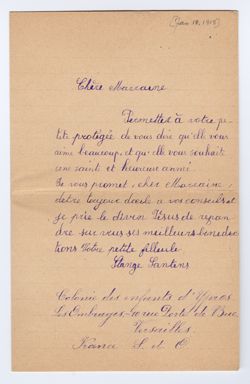 [Jan 18, 1915]
Chère Marraine
Permettes à votre pe-
tite protégée de vous dire qu'elle vous
aime beaucoup, et qu'elle vous souhaite
une sainte et heureuse année.
Je vous promet, chèr Marraine,
d'être toujours docile a vos conseils et
je prie le divin Jésus de repan-
dre sur vous ses meilleurs benedic
tions Votre petite filleule.
Santens
Colonie des enfants d'Ypres.
rue Porte de Buc
Versailles.
France S. et O.